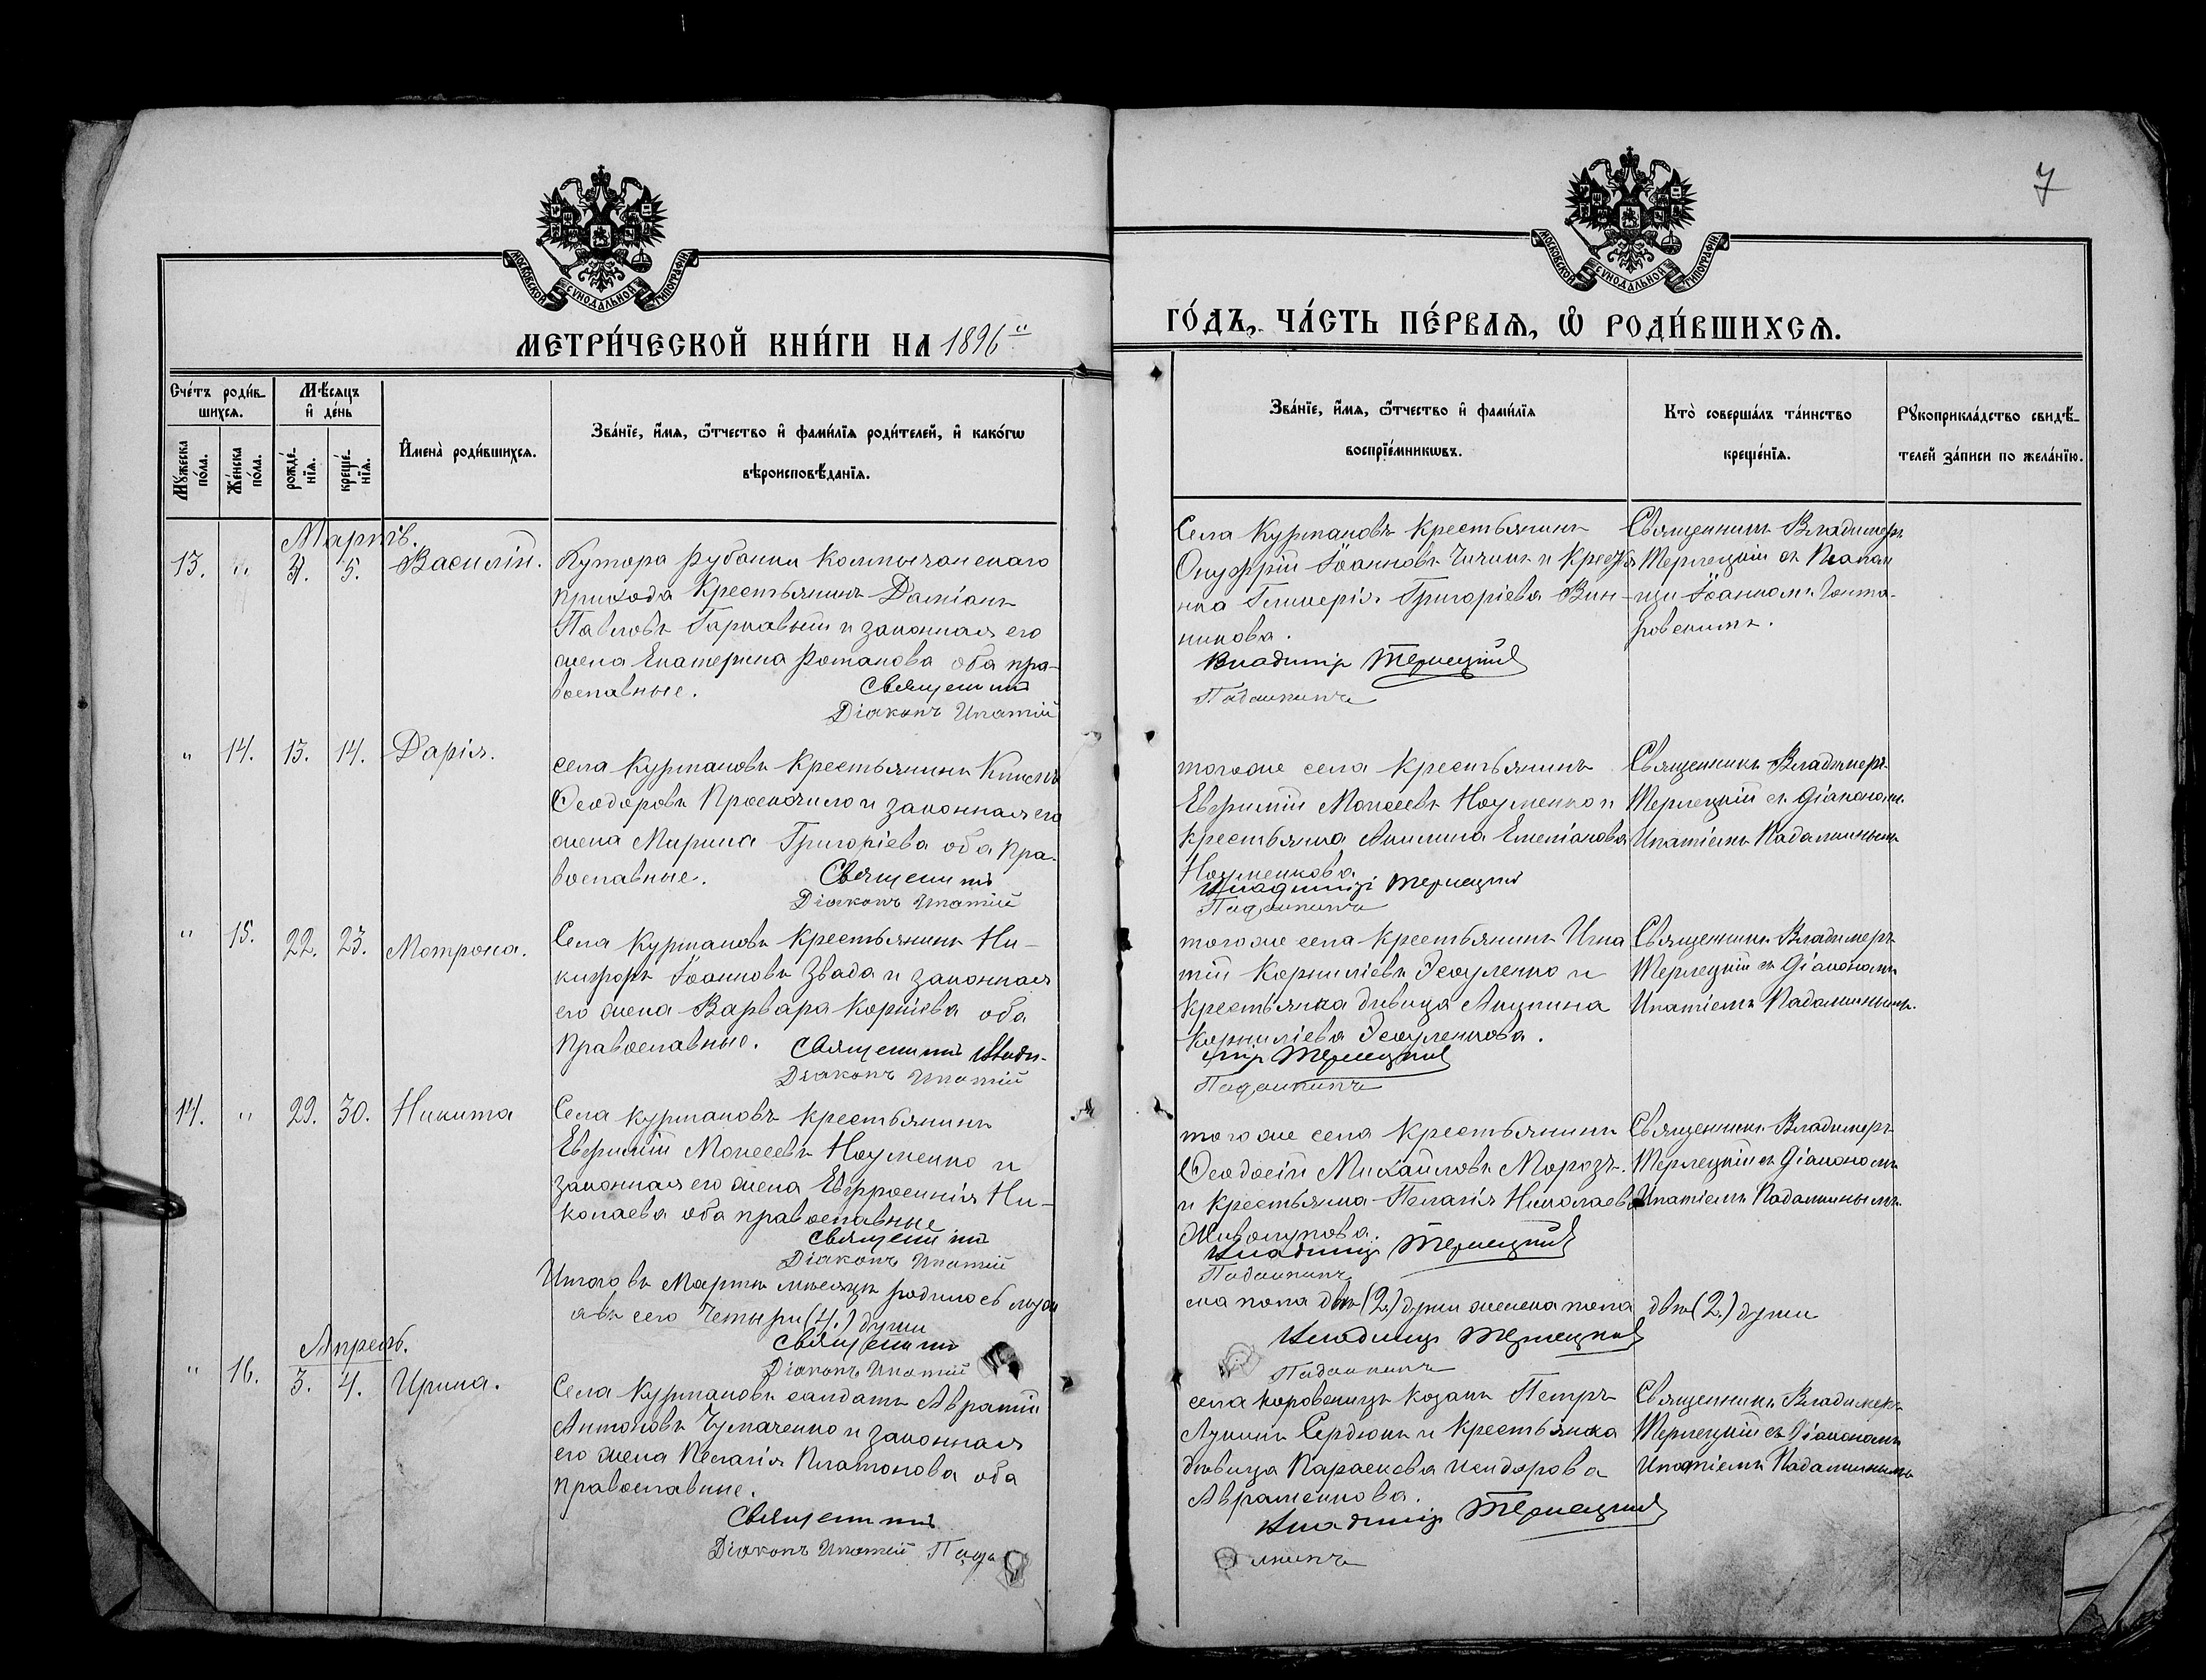 7
МОСКОВСКОЙ СУНОДАЛЬНОЙ ТИПОГРАФІИ
МОСКОВСКОЙ СУНОДАЛЬНОЙ ТИПОГРАФІИ
МЕТРИ́ЧЕСКОЙ КНИ́ГИ НА 1896
ГО́ДЪ, ЧА́СТЬ ПЕ́РВАѦ, Ѽ РОДИ́ВШИХСѦ.
Сче́тъ роди́в-
шихсѧ.
Мꙋжеска
по́ла.
Же́нска
по́ла.
Мѣ́сѧцъ
и҆ де́нь
рожде́-
нїѧ.
креще́-
нїѧ.
И҆мена̀ роди́вшихсѧ.
Зва́нїе, и҆́мѧ, ѻ҆́тчество и҆ фами́лїѧ роди́телей, и҆ како́гѡ
вѣроисповѣ́данїѧ.
Зва́нїе, и҆́мѧ, ѻ҆́тчество и҆ фами́лїѧ
воспрїе́мникѡвъ.
Кто̀ соверша́лъ та́инство
креще́нїѧ.
Рꙋкоприкла́дство свидѣ́-
телей за́писи по жела́нїю.
Мартъ.
13. „ 5. Василій.
Хутора Рубанки
прихода Крестьянинъ Даміанъ
Павловъ Гаркавый и законная его
жена Екатерина Романова оба пра-
вославные. Священникъ
Діаконъ Ипатій
Села Курмановъ крестьянинъ
Онуфрій Іоанновъ и крестья
нка Гликерія Григоріева Вин-
никова.
Владиміръ Терлецкій
Падалкинъ
Священникъ Владимеръ
Терлецкій съ
Іоанномъ
„ 14. 13. 14. Дарія.
села Курмановъ Крестьянинъ
Ѳеодоровъ и законная его
жена Марина Григоріева оба пра-
вославные. Священникъ
Діаконъ Ипатій
тогоже села крестьянинъ
Евфимій Моисеевъ Науменко и
крестьянка Акилина Емеліанова
Науменкова
Владиміръ Терлецкій
Падалкинъ
Священникъ Владимеръ
Терлецкій съ діакономъ
Ипатіемъ Падалкинымъ
„ 15. 22. 23. Мотрона.
Села Курмановъ крестьянинъ Ни-
кифоръ Іоанновъ Звада и законная
его жена Варвара Корніева оба
православные. Священникъ Влади-
Діаконъ Ипатій
тогоже села крестьянинъ Игна
тій Корниліевъ Эсауленко и
крестьянка девица Акилина
Корниліева Эсауленкова.
міръ Терлецкій
Падалкинъ
Священникъ Владимеръ
Терлецкій съ діакономъ
Ипатіемъ Падалкинымъ.
14. „ 29. 30. Никита
Села Курмановъ крестьянинъ
Евфимій Моисеевъ Науменко и
законная его жена Евфросинія Ни-
колаева оба православные
Священникъ
Діаконъ Ипатій
тогоже села крестьянинъ
Ѳеодосій Михайловъ Морозъ
и крестьянка Пелагія Николаева
Владиміръ Терлецкій
Падалкинъ
Священникъ Владимеръ
Терлецкій съ діакономъ
Ипатіемъ Падалкинымъ
Итого въ Мартѣ мѣсяцѣ родилось
а всего Четыри (4.) души
ска пола двѣ (2.) души женска пола двѣ (2.) души
Священникъ
Владиміръ Терлецкій
Діаконъ Ипатій
Падалкинъ
Апрель.
„ 16. 3. 4. Ирина.
Села Курмановъ салдатъ Аврамій
Антоновъ Чумаченко и законная
его жена Пелагія Платонова оба
православные.
Священникъ
Діаконъ Ипатій Пада
села Коровенцъ козакъ Петръ
Лукинъ Сердюкъ и крестьянка
дѣвица Параскева Исидорова
Авраменкова.
Владиміръ Терлецкій
лкинъ
Священникъ Владимеръ
Терлецкій съ діакономъ
Ипатіемъ Падалкинымъ